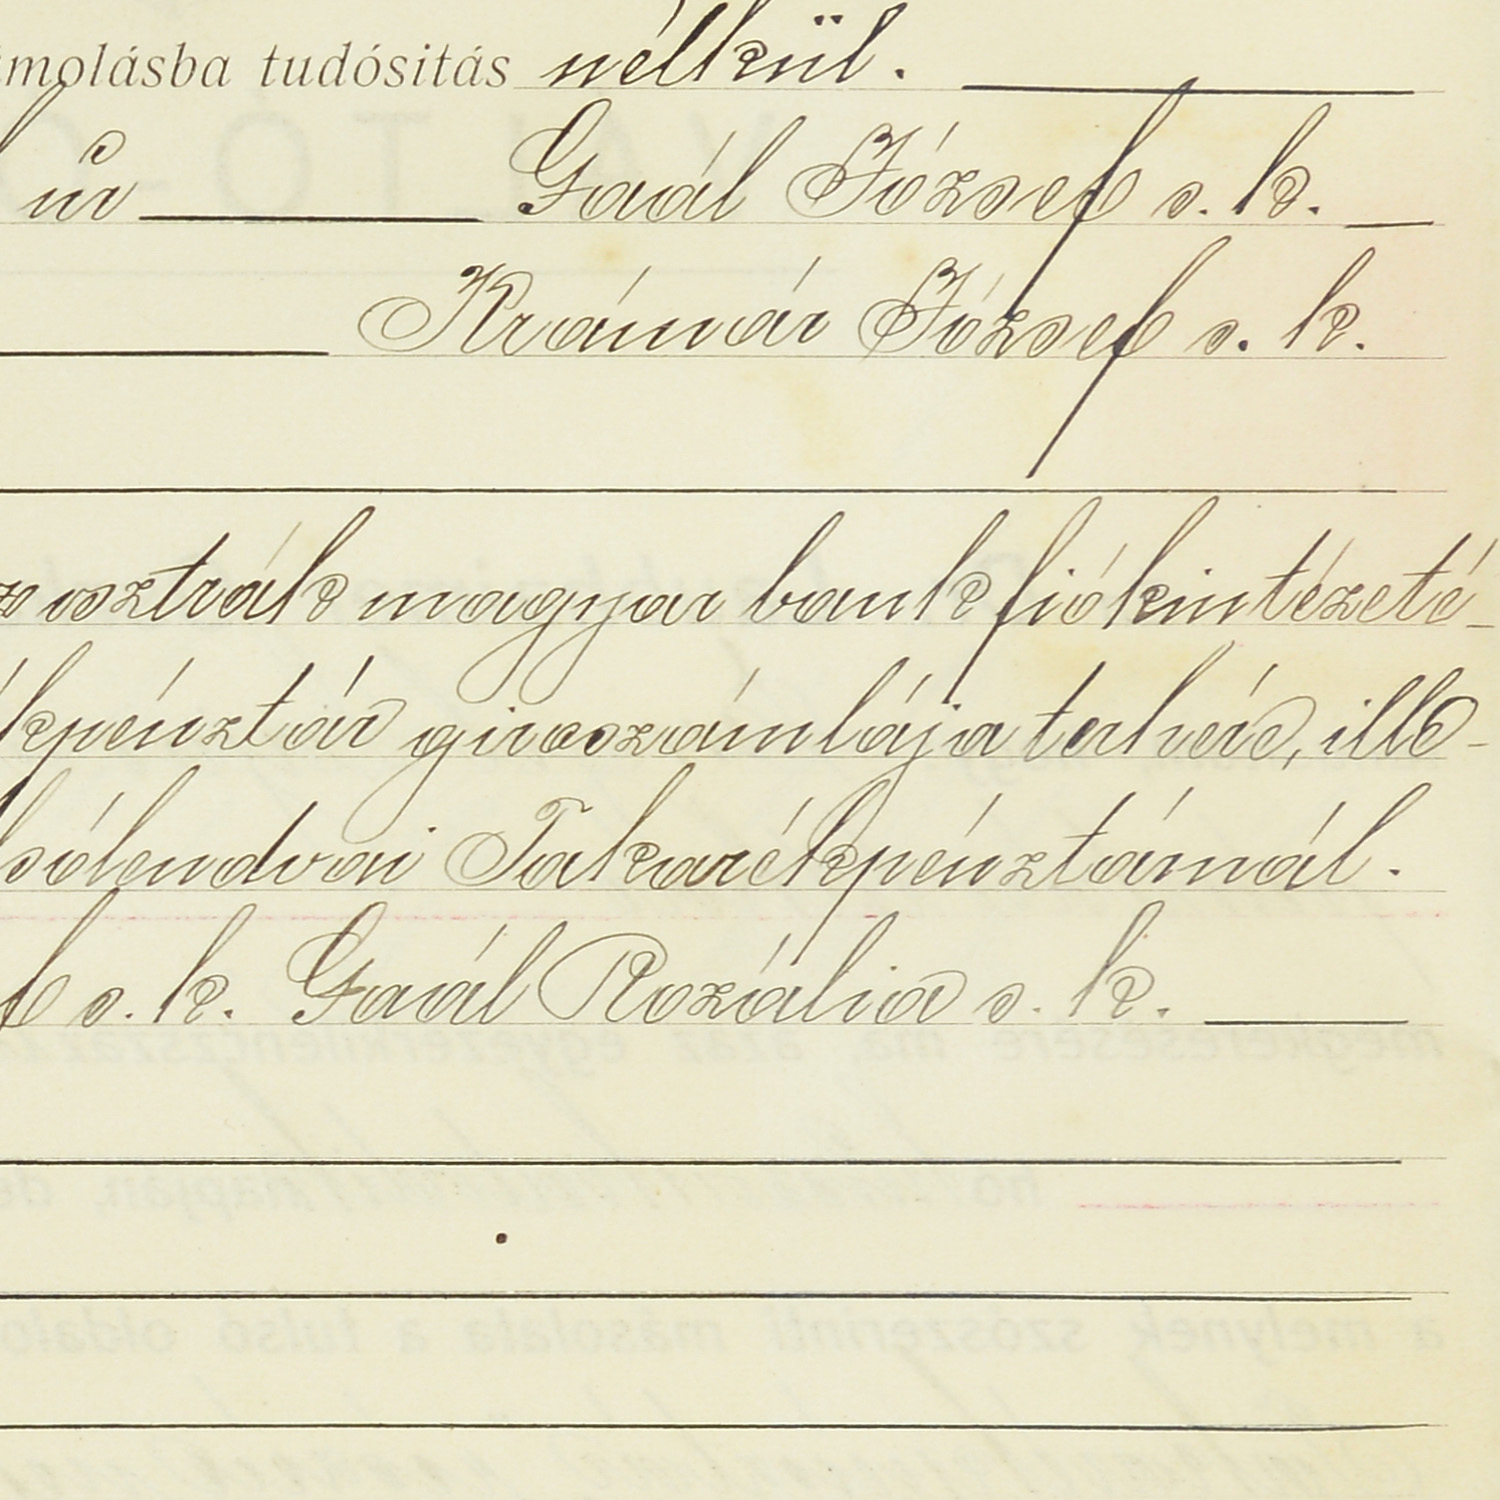 ámolásba tudósitás nélkül.
úr Gaál József s. k.
Krámár József s. k.
osztrák magyar bank fiókintézeté-
kpénztár giroszámlája terhére, ille-
lsólendvai Takarékpénztárnál.
f s. k. Gaál Rozália s. k.